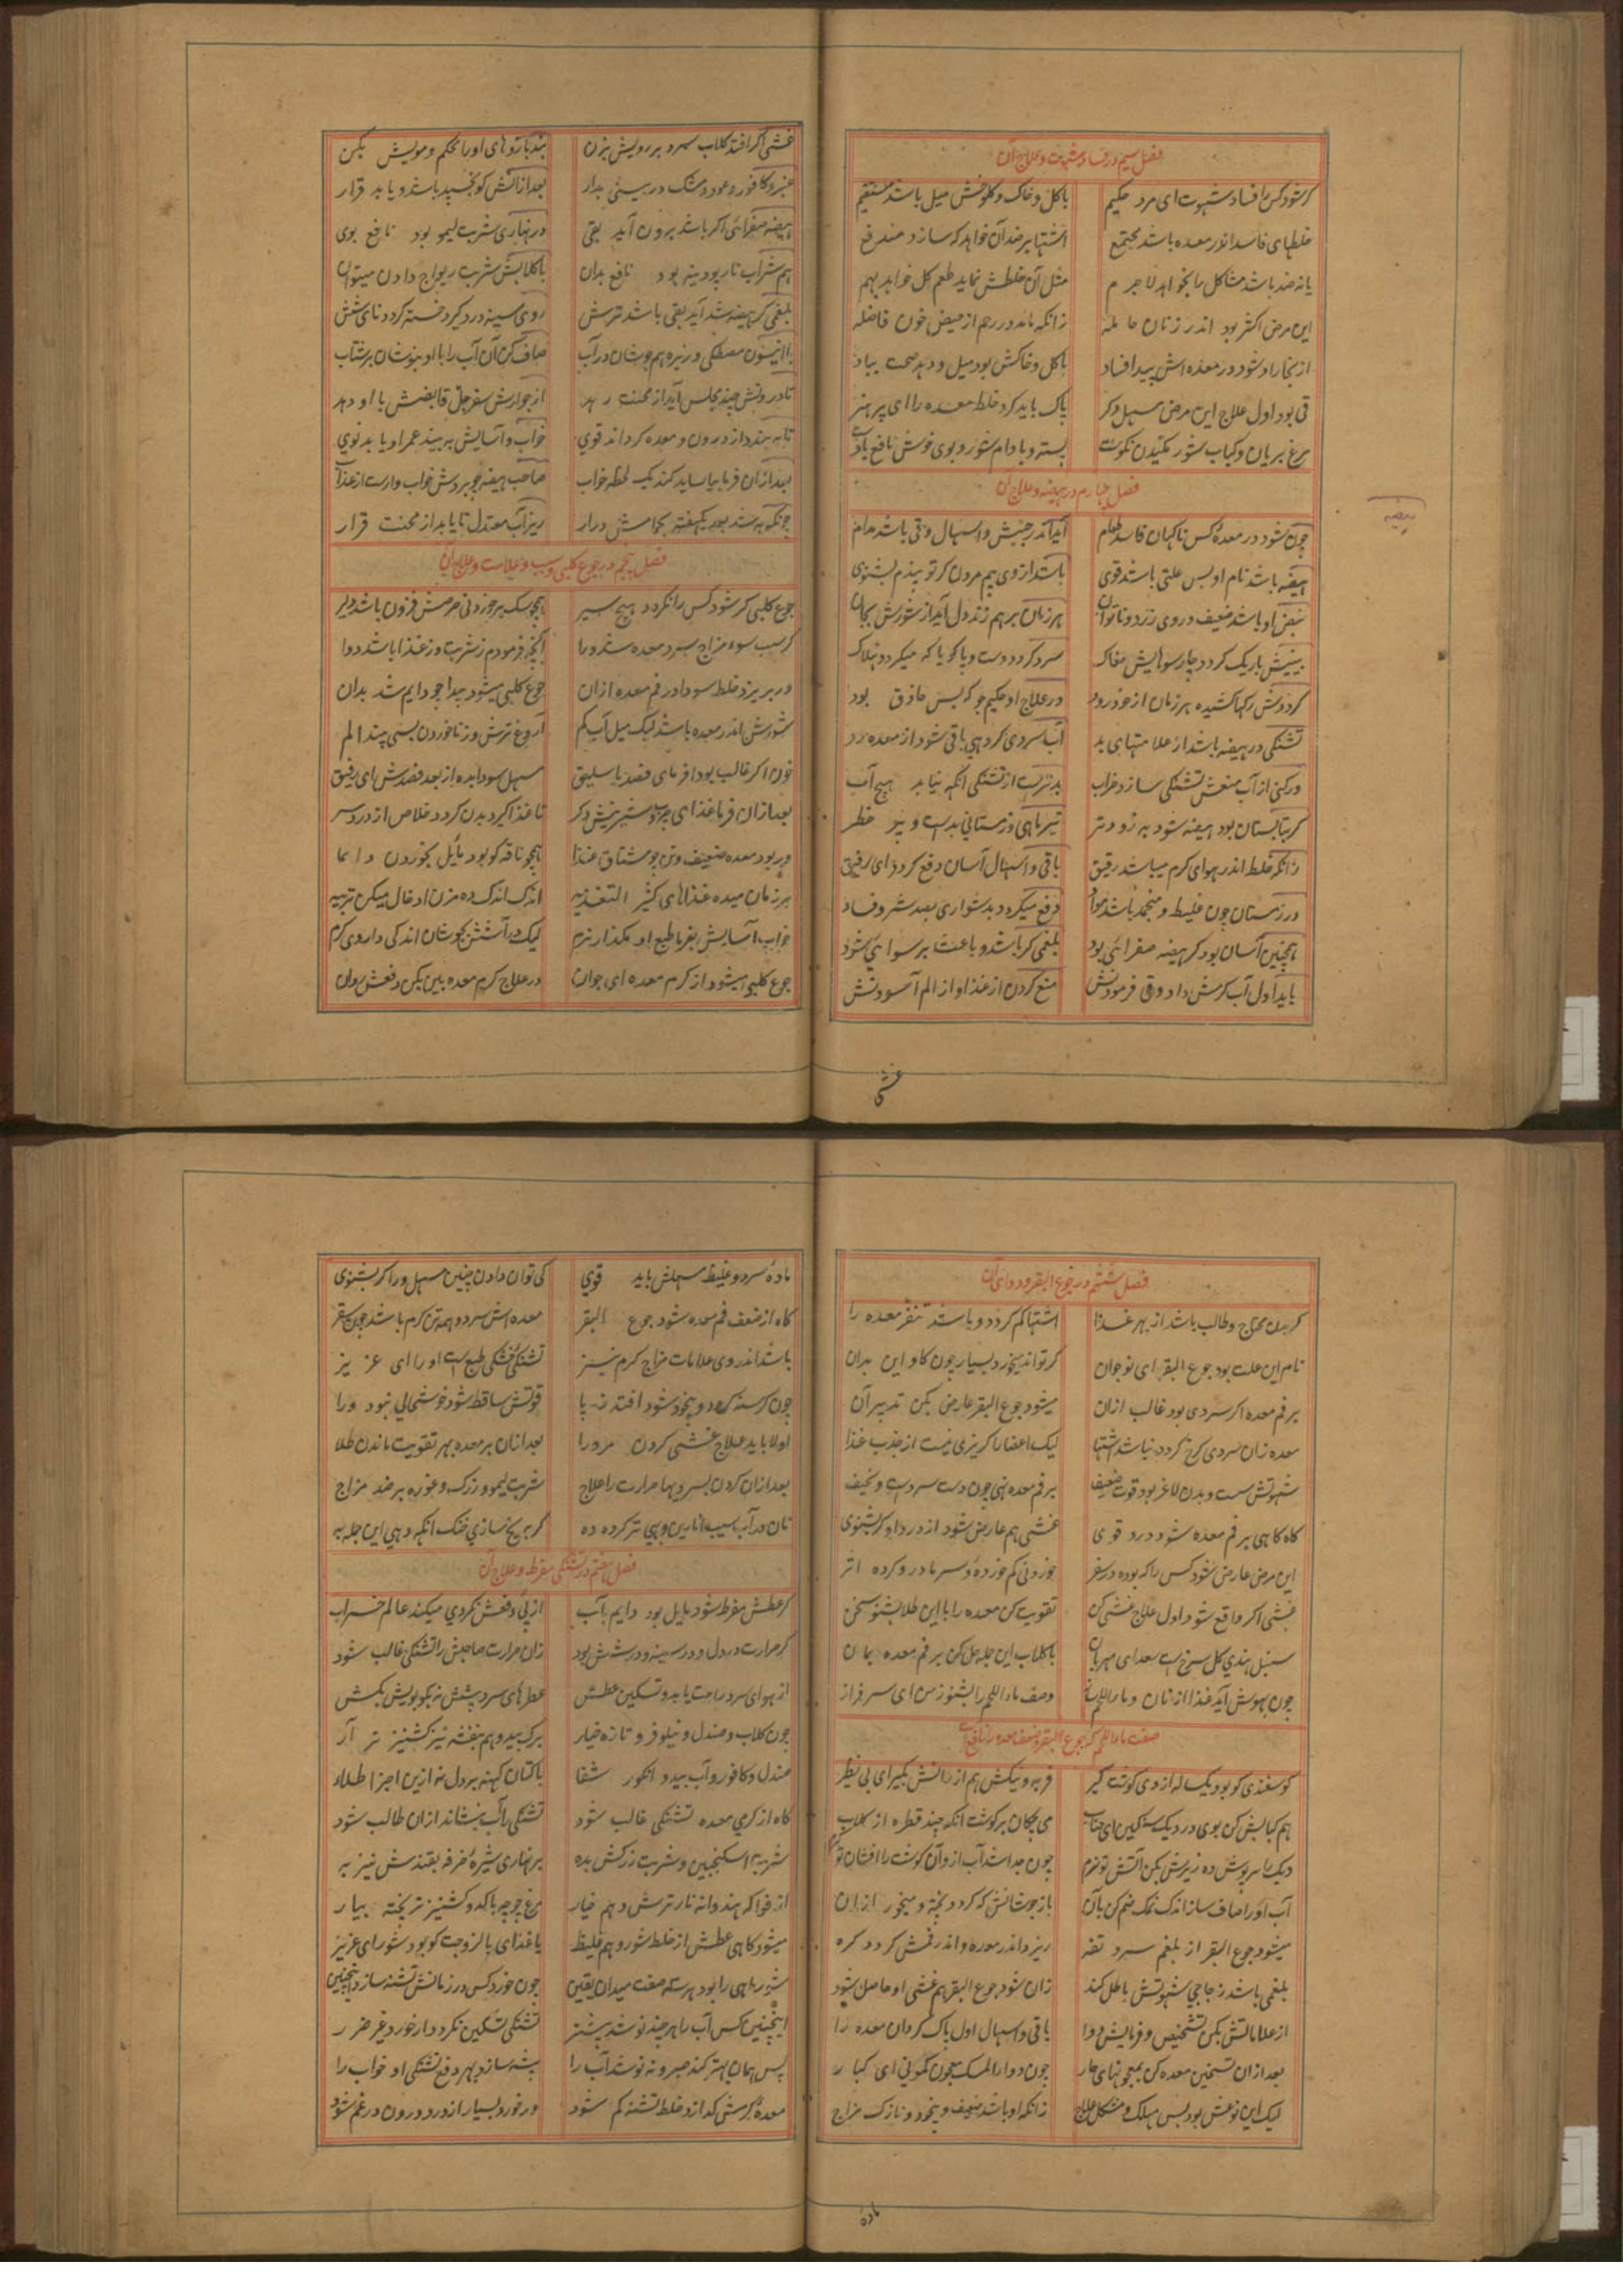 فصل سیم در فساد شهوت و علاج آن
گر شود کس را فساد شهوت ای مرد حکیم باگل و خاک و کلوخش میل باشد مستقیم
خلطهای فاسد اندر معده باشد مجتمع اشتها بر ضد آن خواهد که سازد مندفع
یا نه ضد باشد مشاکل را بخواهد لاجرم مثل آن خلطش نماید طعم گل خواهد بهم
این مرض اکثر بود اندر زنان حامله زانکه ماند در رحم از حیض خون فاضله
از بخار او شود در معده اش پیدا فساد باگل و خاکش بود میل و دهد صحت بباد
قی بود اول علاج این مرض مسهل دگر پاک باید کرد خلط معده را ای پر هنر
مرغ بریان و کباب شور مکیدن نکوست پسته و بادام شور و بوی خوش نافع
فصل چهارم در هیضه و علاج آن
چون شود در معده کس ناکهان فاسد طعام آید اندر جنبش و اسهال و قی باشد مدام
هیضه باشد نام او بس علتی باشد قوی باشد از وی بیم مردن گر تو پندم بشنوی
نبض او باشد ضعیف و روی زرد و ناتوان هر زمان بر هم زند دل آید از شورش بجان
بینیش باریک گردد چار سوهایش مغاک سرد گردد دست و پا گویا که میگردد هلاک
گردنش رگها کشیده هر زمان از خود رود در علاج او حکیم جو که بس حاذق بود
تشنگی در هیضه باشد از علامتهای بد آب سردی گر دهی باقی شود از معده رد
ور کنی از آب منعش تشنگی سازد خراب بدتر است از تشنگی آنکه نیابد هیچ آب
گر بتابستان بود هیضه شود به زودتر تیر ماهی و زمستانی بد است و پر خطر
زانکه خلط اندر هوای گرم میباشد رقیق باقی و اسهال آسان دفع گردد ای رفیق
در زمستان چون غلیظ و منجمد باشد مواد دفع میگردد بدشواری بصد شر و فساد
همچنین آسان بود گر هیضه صفرائی بود بلغمی گر باشد و باعث بر سوائی شود
باید اول آب گرمش داد و قی فرمودنش منع کردن از غذا و از الم آسودنش
هیضه
غشی
غشی اگر افتد گلاب سرد بر رویش بزن بند بازوهای او را محکم و مویش بکن
عنبر و کافور و عود و مشک در بینی بدار بعد از آنش کو نجنبد باشد و یابد قرار
هیضه صفرائی اگر باشد برون آید بقی در نهاری شربت لیمو بود نافع بوی
هم شراب نار پودینه بود نافع بدان باگلابش شربت ریواج دادن میتوان
بلغمی گر هیضه شد آید بقی باشد ترش روی سینه درد گیرد خسته گردد نای شش
با انیسون مصطکی و زیره هم جوشان در آب صاف کن آن آب را با او بنوشان بر شتاب
تا درونش چند مجلس آید از محنت رهد از جوارش سفرجل قابضش با او دهد
تا به بندد از درون و معده گرداند قوی خواب و آسایش به بیند عمر او یابد نوی
بعد از آن فرما بیاساید کند یک لحظه خواب صاحب هیضه چو بردش خواب وارست از عذاب
چونکه به شد بعد یکهفته بحمامش درار ریز آب معتدل تا یابد از محنت قرار
فصل پنجم در جوع کلبی و سبب و علامت و علاج آن
جوع کلبی گر شود کس را نگردد هیچ سیر همچو سگ بر خوردنی حرصش فزون باشد دلیر
گر سبب سوء مزاج سرد معده شد ورا آنچه فرمودم ز شربت وز غذا باشد دوا
ور بریزد خلط سودا در فم معده از آن جوع کلبی میشود پیدا چو دایم شد بدان
شورش اندر معده باشد لیک میل آب کم آروغ ترش و ز ناخوردن بسی بیند الم
خون اگر غالب بود فرمای فصد باسلیق مسهل سودا بده از بعد فصدش ای رفیق
بعد از آن فرما غذای چرب و شیرینش دگر تا غذا گیرد بدن گردد خلاص از دردسر
ور بود معده ضعیف و تن چو مشتاق غذا همچو ناقه کو بود مایل بخوردن دائما
هر زمان میده غذاهای کثیر التغذیه اندک اندک ده مزن ادخال میکن تربیه
خواب آسایش بفرما طبع او مگذار نرم لیک در آشش بجوشان اندکی داروی گرم
جوع کلبی میشود از گرم معده ای جوان در علاج گرم معده بین بکن دفعش روان
فصل ششم در جوع البقر و دوای آن
گر بدن محتاج و طالب باشد از بهر غذا اشتها کم گردد و باشد تنفر معده را
نام این علت بود جوع البقر ای نوجوان گر تواند میخورد بسیار چون گاو این بدان
بر فم معده اگر سردی بود غالب از آن میشود جوع البقر عارض بکن تدبیر آن
معده زان سردی کرخ گردد نباشد اشتها لیک اعضا را گریزی نیست از جذب غذا
شهوتش سست و بدن لاغر بود قوت ضعیف بر فم معده نهی چون دست سرد است و نحیف
گاه گاهی بر فم معده شود درد قوی غشی هم عارض شود از درد او گر بشنوی
این مرض عارض شود کس را که بوده در سفر خوردنی کم خورده و سرما درو کرده اثر
غشی اگر واقع شود اول علاج غشی کن تقویت کن معده را با این طلا بشنو سخن
سنبل هندی گل سرخ است سعد ای مهربان باگلاب این جمله حل کن بر فم معده بمان
چون بهوش آید غذا از نان و ماء اللحم ساز وصف ماء اللحم را بشنو ز من ای سرفراز
صفت ماء اللحم که جوع البقر و ضعف معده را نافع است
گوسفندی کو بود یک ساله از وی گوشت گیر فربه و نیکش هم از رانش بگیر ای بی نظیر
هم کبابش کن بوی در دیک سنگین ای جناب می چکان بر گوشت آنکه چند قطره از گلاب
دیک را سرپوش ده زیرش بکن آتش تو نرم چون جدا شد آب ازو آن گوشت را افشان تو
آب او را صاف ساز اندک نمک ضم کن بآن باز جوشانش که گردد پخته و میخور از آن
میشود جوع البقر از بلغم سرد تفه ریزد اندر معده و اندر فمش گردد کره
بلغمی باشد زجاجی شهوتش باطل کند زان شود جوع البقر هم غشی او حاصل شود
از علاماتش بکن تشخیص و فرمایش دوا باقی و اسهال اول پاک گردان معده را
بعد از آن تسخین معده کن بمعجونهای حار چون دواء المسک معجون کمونی ای کبار
لیک این نوعش بود بس مهلک و مشکل علاج زانکه او باشد ضعیف و بیخود و نازک مزاج
ماده
ماده سرد و غلیظ مسهلش باید قوی کی توان دادن چنین مسهل ورا گر بشنوی
گاه از ضعف فم معده شود جوع البقر معده اش سرد و همه تن گرم باشد چون سقر
باشد اندر وی علامات مزاج گرم نیز تشنگی خشکی طبع است او را ای عزیز
چون گرسنه گردد و بیخود شود افتد ز پا قوتش ساقط شود خوشحالی نبود ورا
اولا باید علاج غشی کردن مر ورا بعد از آن بر معده بهر تقویت ماندن طلا
بعد از آن کردن بسردیها حرارت را علاج شربت لیمو و زرک و غوره بر ضد مزاج
نان در آب سیب انارین و بهی تر کرده ده گر بریخ سازی خنک آنکه دهی این جمله به
فصل هفتم در تشنگی مفرط و علاج آن
گر عطش مفرط شود مایل بود دایم بآب از پی دفعش نکردی میکند عالم خراب
گر حرارت در دل و در سینه و در شش بود زان حرارت صاحبش را تشنگی غالب شود
از هوای سرد راحت یابد و تسکین عطش عطرهای سرد پیشش نه بگو بویش بکش
چون گلاب و صندل و نیلوفر و تازه خیار برگ بید و هم بنفشه نیز کشنیز تر آر
صندل و کافور و آب بید و انگور شفا باکتان کهنه بر دل نه ازین اجزا طلاء
گاه از گرمی معده تشنگی غالب شود تشنگی را آب بنشاند از آن طالب شود
شربت اسکنجبین و شربت زرکش بده بر نهاری شیره خرفه بقندش نیز به
از فواکه هندوانه نار ترش و هم خیار مرغ چوچه باکدو کشنیز تر پخته بیار
میشود گاهی عطش از خلط شور و هم غلیظ یا غذای بالزوجت کو بود شور ای عزیز
شور ماهی را بود هر سه صفت میدان یقین چون خورد کس در زمانش تشنه سازد اینچنین
اینچنین کس آب را هر چند نوشد بیشتر تشنگی تسکین نگردد دارد خورد غیر ضرر
پس همان بهتر کند صبر و نه نوشد آب را پیشه سازد بهر دفع تشنگی او خواب را
معده گرمش گدازد خلط تشنه کم شود ور خورد بسیار از درد درون در غم شود